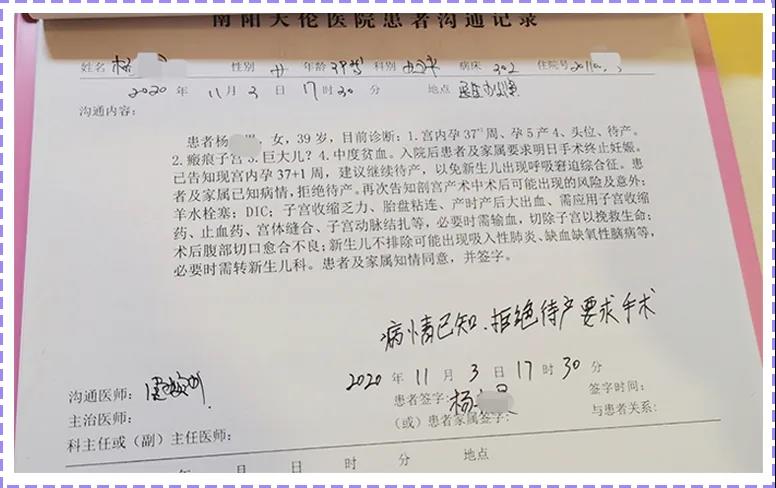 南阳天伦医院患者沟通记录
姓名 杨 性别 女 年龄 39岁 科别 病床 302 住院号
2020 年 11 月 3 日 17 时 30 分 地点
沟通内容：
患者杨 ，女，39 岁，目前诊断：1.宫内孕 37⁺¹ 周、孕 5 产 4、头位、待产。
2.瘢痕子宫 3.巨大儿？4.中度贫血。入院后患者及家属要求明日手术终止妊娠。
已告知现宫内孕 37+1 周，建议继续待产，以免新生儿出现呼吸窘迫综合征。患
者及家属已知病情，拒绝待产。再次告知剖宫产术中术后可能出现的风险及意外：
羊水栓塞；DIC；子宫收缩乏力、胎盘粘连、产时产后大出血、需应用子宫收缩
药、止血药、宫体缝合、子宫动脉结扎等，必要时需输血，切除子宫以挽救生命；
术后腹部切口愈合不良；新生儿不排除可能出现吸入性肺炎、缺血缺氧性脑病等，
必要时需转新生儿科。患者及家属知情同意，并签字。
病情已知、拒绝待产要求手术
2020 年 11 月 3 日 17 时 30 分
沟通医师：
患者签字：杨 签字时间：
主治医师：
（或）患者家属签字： 与患者关系：
科主任或（副）主任医师：
年 月 日 时 分 地点